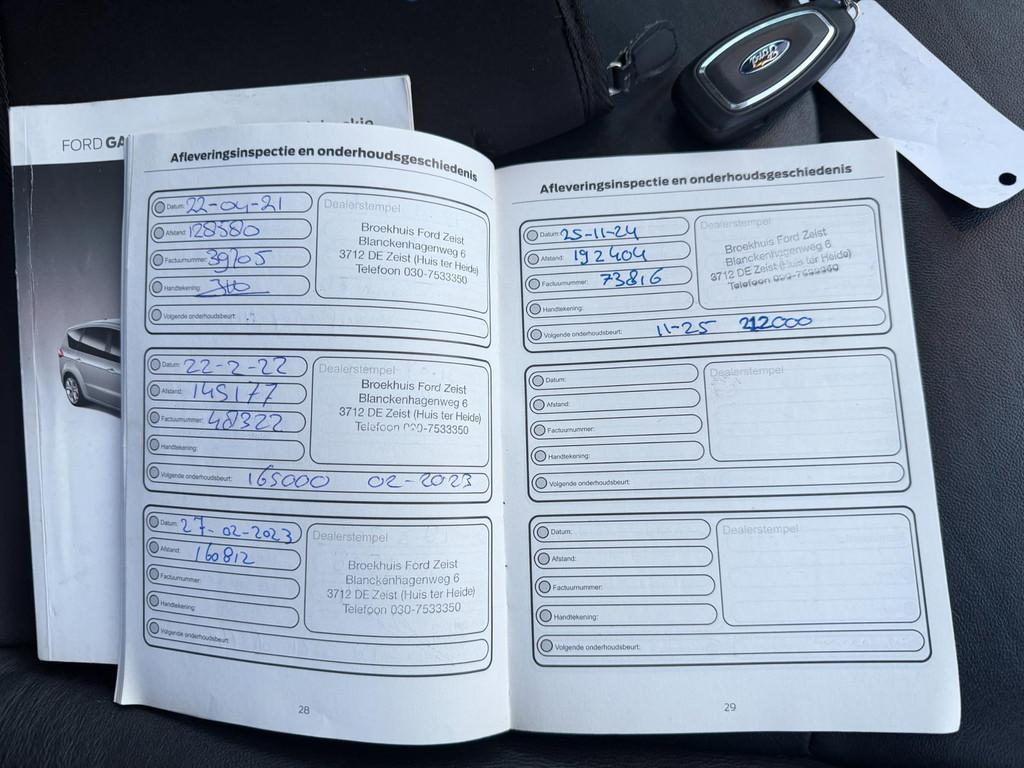 FORD GA
Ford
Afleveringsinspectie en onderhoudsgeschiedenis
Datum: 22-04-21
Afstand: 128580
Factuurnummer: 39205
Handtekening:
Volgende onderhoudsbeurt:
Dealerstempel
Broekhuis Ford Zeist
Blanckenhagenweg 6
3712 DE Zeist (Huis ter Heide)
Telefoon 030-7533350
Datum: 22-2-22
Afstand: 145177
Factuurnummer: 48322
Handtekening:
Volgende onderhoudsbeurt: 165000 02-2023
Dealerstempel
Broekhuis Ford Zeist
Blanckenhagenweg 6
3712 DE Zeist (Huis ter Heide)
Telefoon 030-7533350
Datum: 27-02-2023
Afstand: 160812
Factuurnummer:
Handtekening:
Volgende onderhoudsbeurt:
Dealerstempel
Broekhuis Ford Zeist
Blanckenhagenweg 6
3712 DE Zeist (Huis ter Heide)
Telefoon 030-7533350
28
Afleveringsinspectie en onderhoudsgeschiedenis
Datum: 25-11-24
Afstand: 192404
Factuurnummer: 73816
Handtekening:
Volgende onderhoudsbeurt: 11-25 212000
Dealerstempel
Broekhuis Ford Zeist
Blanckenhagenweg 6
3712 DE Zeist (Huis ter Heide)
Telefoon
Datum:
Afstand:
Factuurnummer:
Handtekening:
Volgende onderhoudsbeurt:
Dealerstempel
Datum:
Afstand:
Factuurnummer:
Handtekening:
Volgende onderhoudsbeurt:
Dealerstempel
29